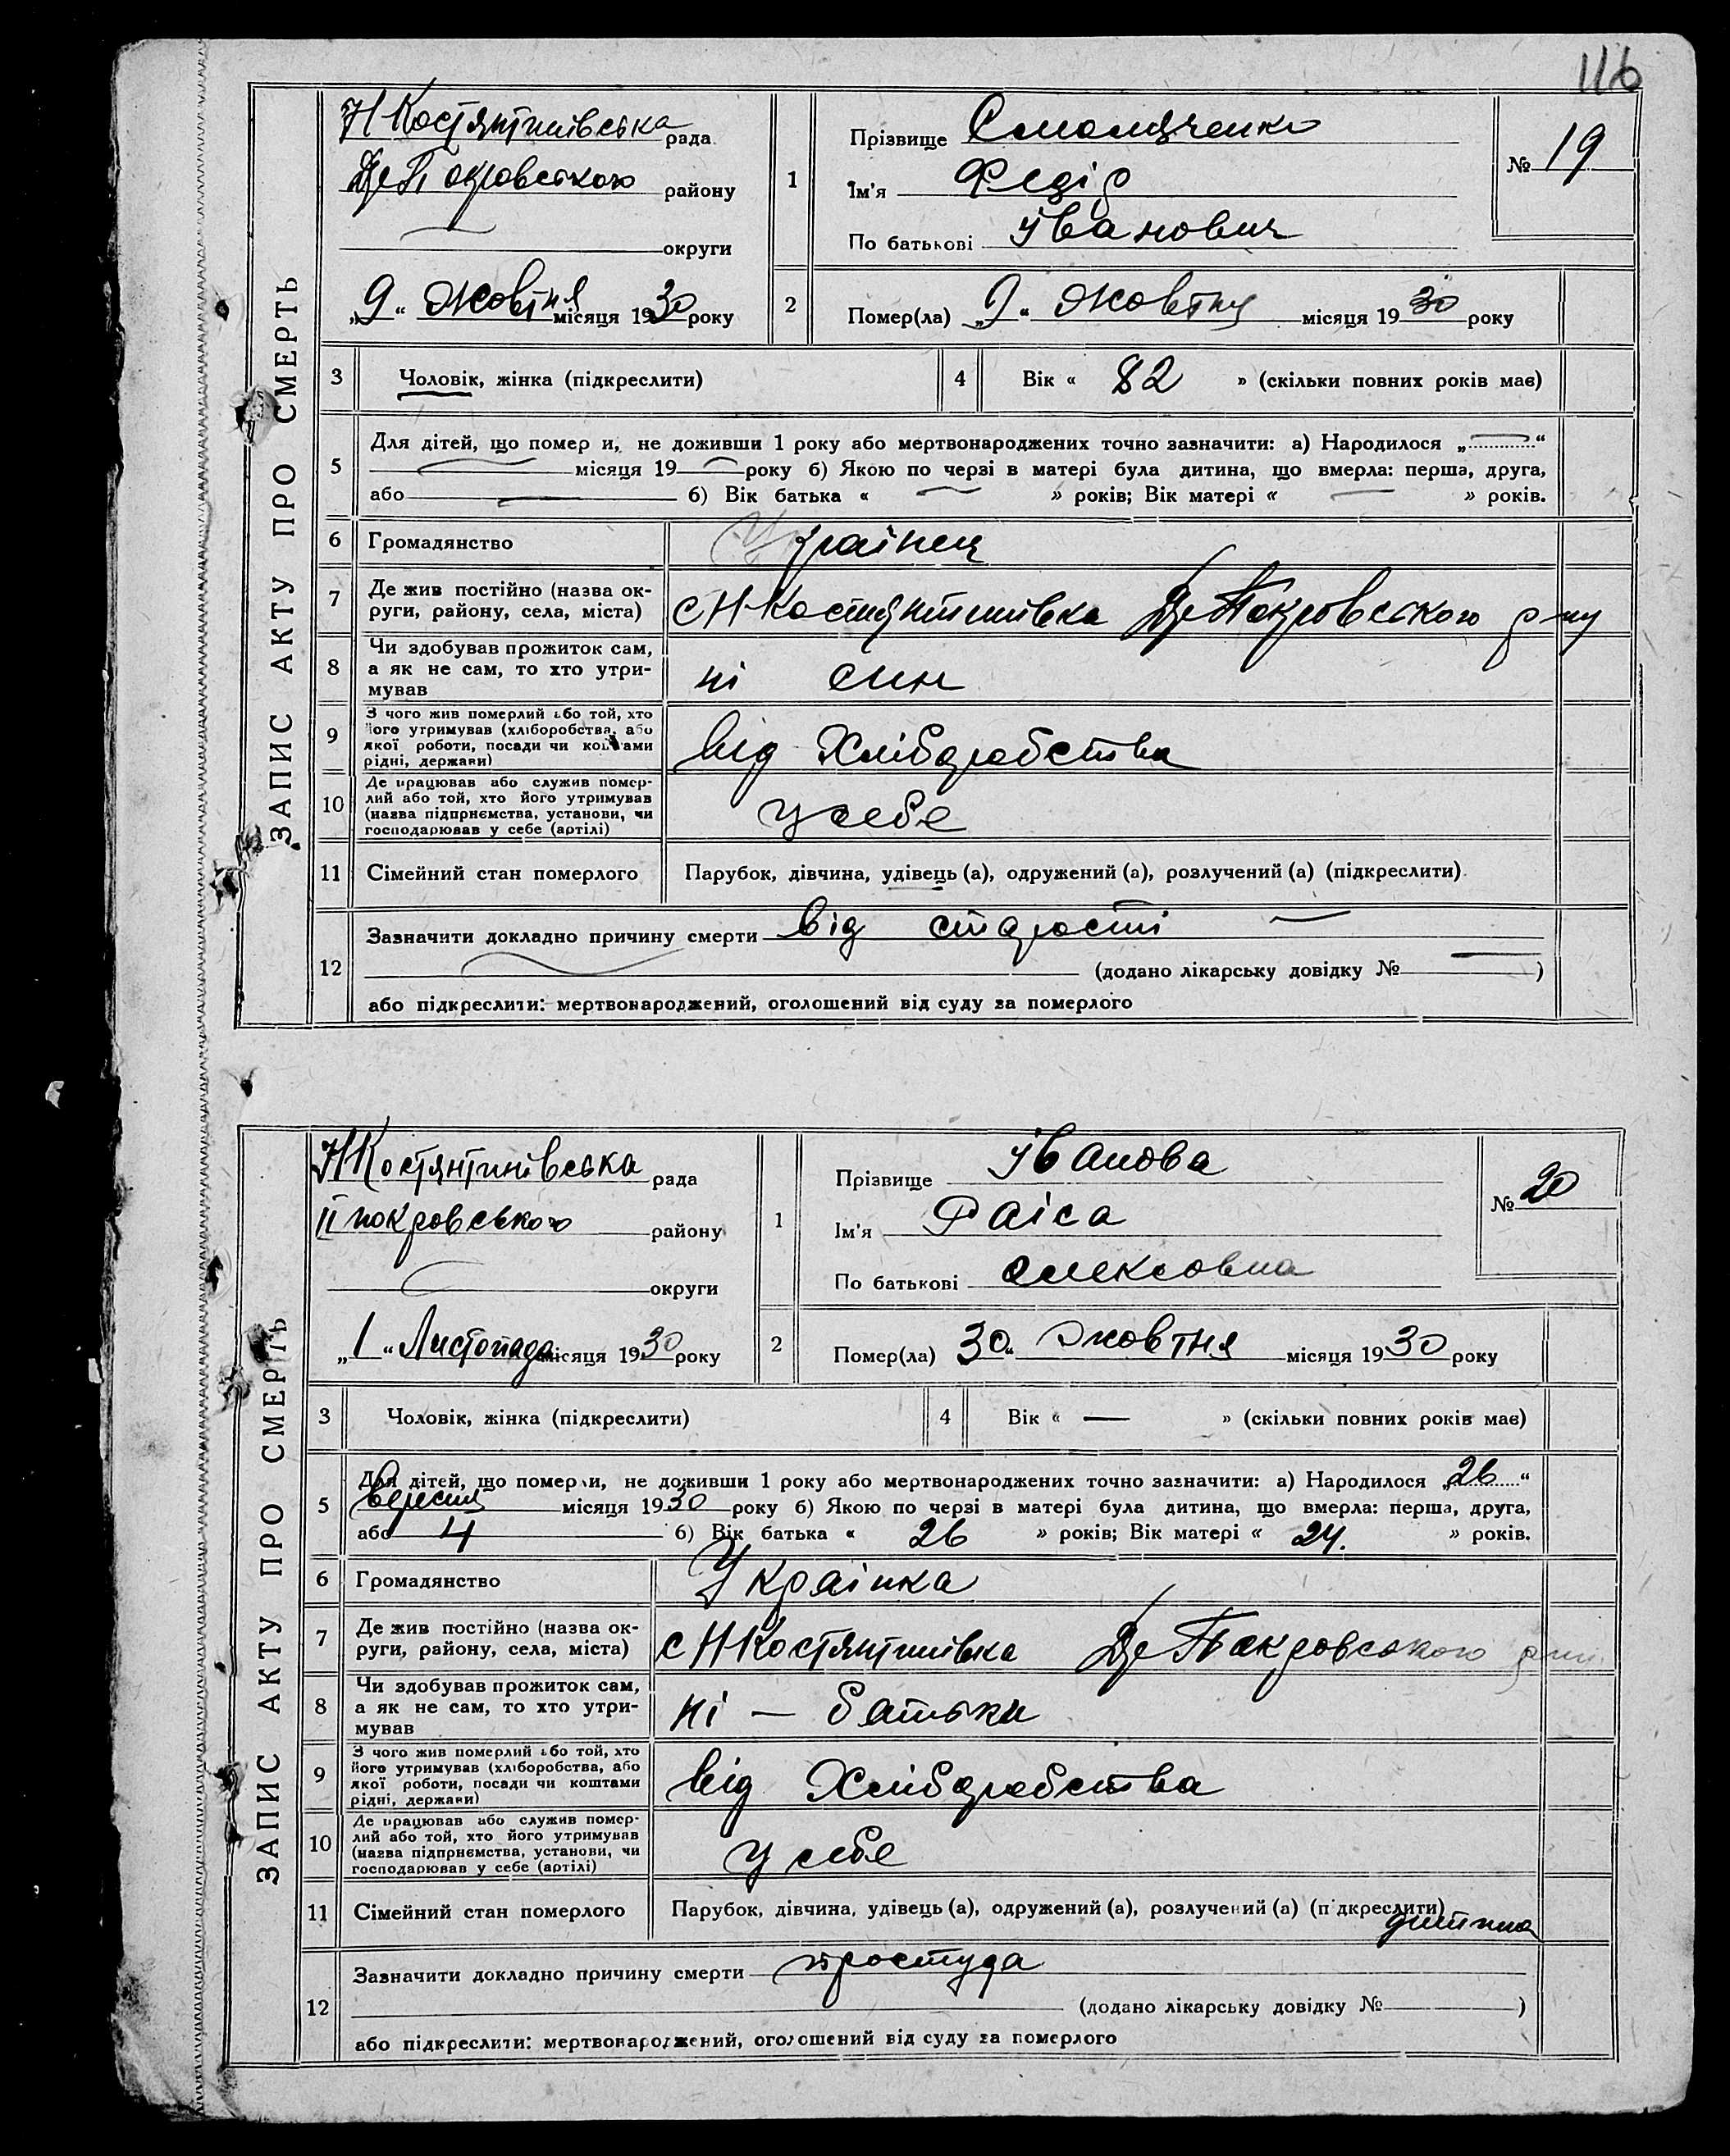 116
ЗАПИС АКТУ ПРО СМЕРТЬ
Н Костянтинівська рада
району
округи
„9“ Жовтня місяця 1930 року
1
Прізвище
Ім'я Федір
По батькові Іванович
№ 19
2
Помер(ла) „9“ Жовтня місяця 1930 року
3 Чоловік, жінка (підкреслити)
4 Вік « 82 » (скільки повних років має)
5 Для дітей, що помер и, не доживши 1 року або мертвонароджених точно зазначити: а) Народилося „ “
місяця 19 року б) Якою по черзі в матері була дитина, що вмерла: перша, друга,
або б) Вік батька « » років; Вік матері « » років.
6 Громадянство Українец
7 Де жив постійно (назва ок-
руги, району, села, міста) с Н-Костянтинівка Покровського р-ну
8 Чи здобував прожиток сам,
а як не сам, то хто утри-
мував ні син
9 З чого жив померлий або той, хто
його утримував (хліборобства, або
якої роботи, посади чи коштами
рідні, держави) від Хліборобства
10 Де працював або служив помер-
лий або той, хто його утримував
(назва підпрнємства, установи, чи
господарював у себе (артілі) у себе
11 Сімейний стан померлого Парубок, дівчина, удівець (а), одружений (а), розлучений (а) (підкреслити)
12 Зазначити докладно причину смерти від старости
(додано лікарську довідку № )
або підкреслити: мертвонароджений, оголошений від суду за померлого
ЗАПИС АКТУ ПРО СМЕРТЬ
НКостянтинівська рада
покровського району
округи
„1“ Листопада місяця 1930 року
1
Прізвище Іванова
Ім'я Раіса
По батькові Олексовна
№ 20
2
Помер(ла) 30“ Жовтня місяця 1930 року
3 Чоловік, жінка (підкреслити)
4 Вік « — » (скільки повних років має)
5 Для дітей, що померли, не доживши 1 року або мертвонароджених точно зазначити: а) Народилося „26“
Вересня місяця 1930 року б) Якою по черзі в матері була дитина, що вмерла: перша, друга,
або 4 б) Вік батька « 26 » років; Вік матері « 24. » років.
6 Громадянство Украінка
7 Де жив постійно (назва ок-
руги, району, села, міста) с НКостянтинівка Покровського
8 Чи здобував прожиток сам,
а як не сам, то хто утри-
мував ні — батьки
9 З чого жив померлий або той, хто
його утримував (хліборобства, або
якої роботи, посади чи коштами
рідні, держави) від Хліборобства
10 Де працював або служив помер-
лий або той, хто його утримував
(назва підпрнємства, установи, чи
господарював у себе (артілі) у себе
11 Сімейний стан померлого Парубок, дівчина, удівець (а), одружений (а), розлучений (а) (підкреслити)
дитина
12 Зазначити докладно причину смерти простуда
(додано лікарську довідку № )
або підкреслити: мертвонароджений, оголошений від суду за померлого